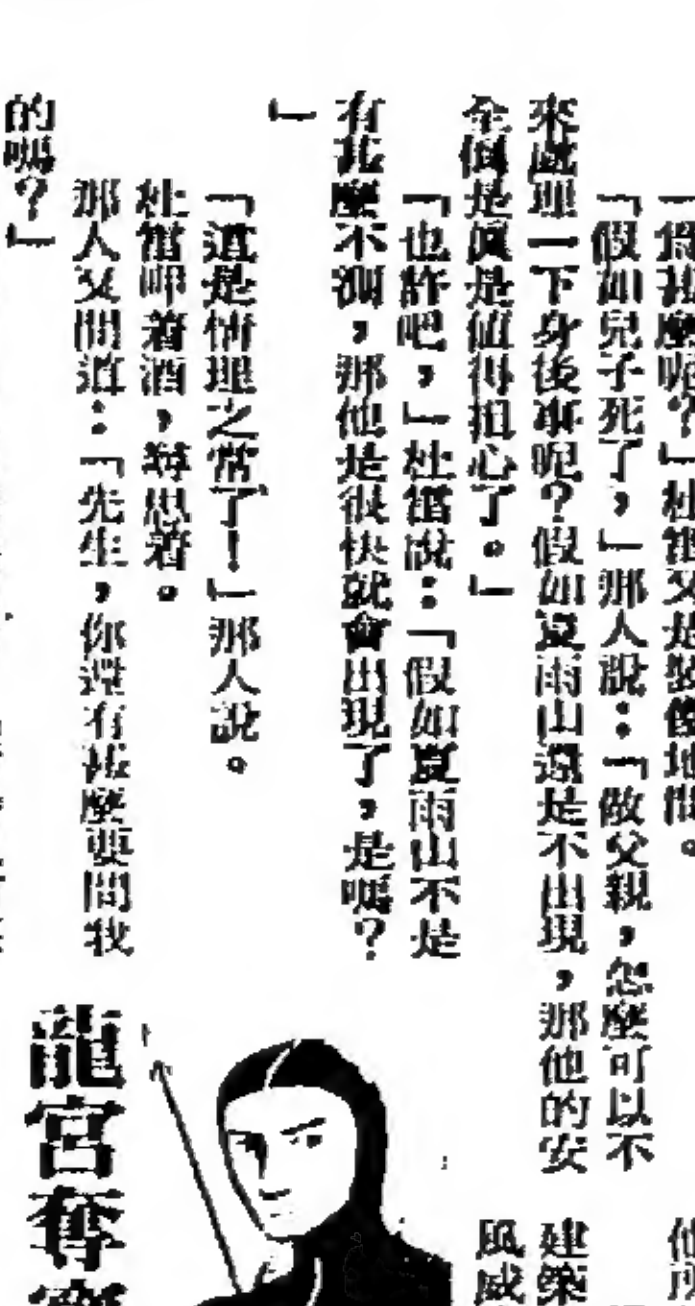 「爲甚麼呢？」杜雷又是裝傻地問。
「假如兒子死了，」那人說：「做父親，怎麼可以不
來處理一下身後事呢？假如夏雨山還是不出現，那他的安
全倒是眞是値得担心了。」
「也許吧，」杜雷說：「假如夏雨山不是
有甚麼不測，那他是很快就會出現了，是嗎？
」
「這是情理之常了！」那人說。
杜雷呷着酒，尋思着。
那人又問道：「先生，你還有甚麼要問我
的嗎？」
他所
建築
風威
龍宮奪寶